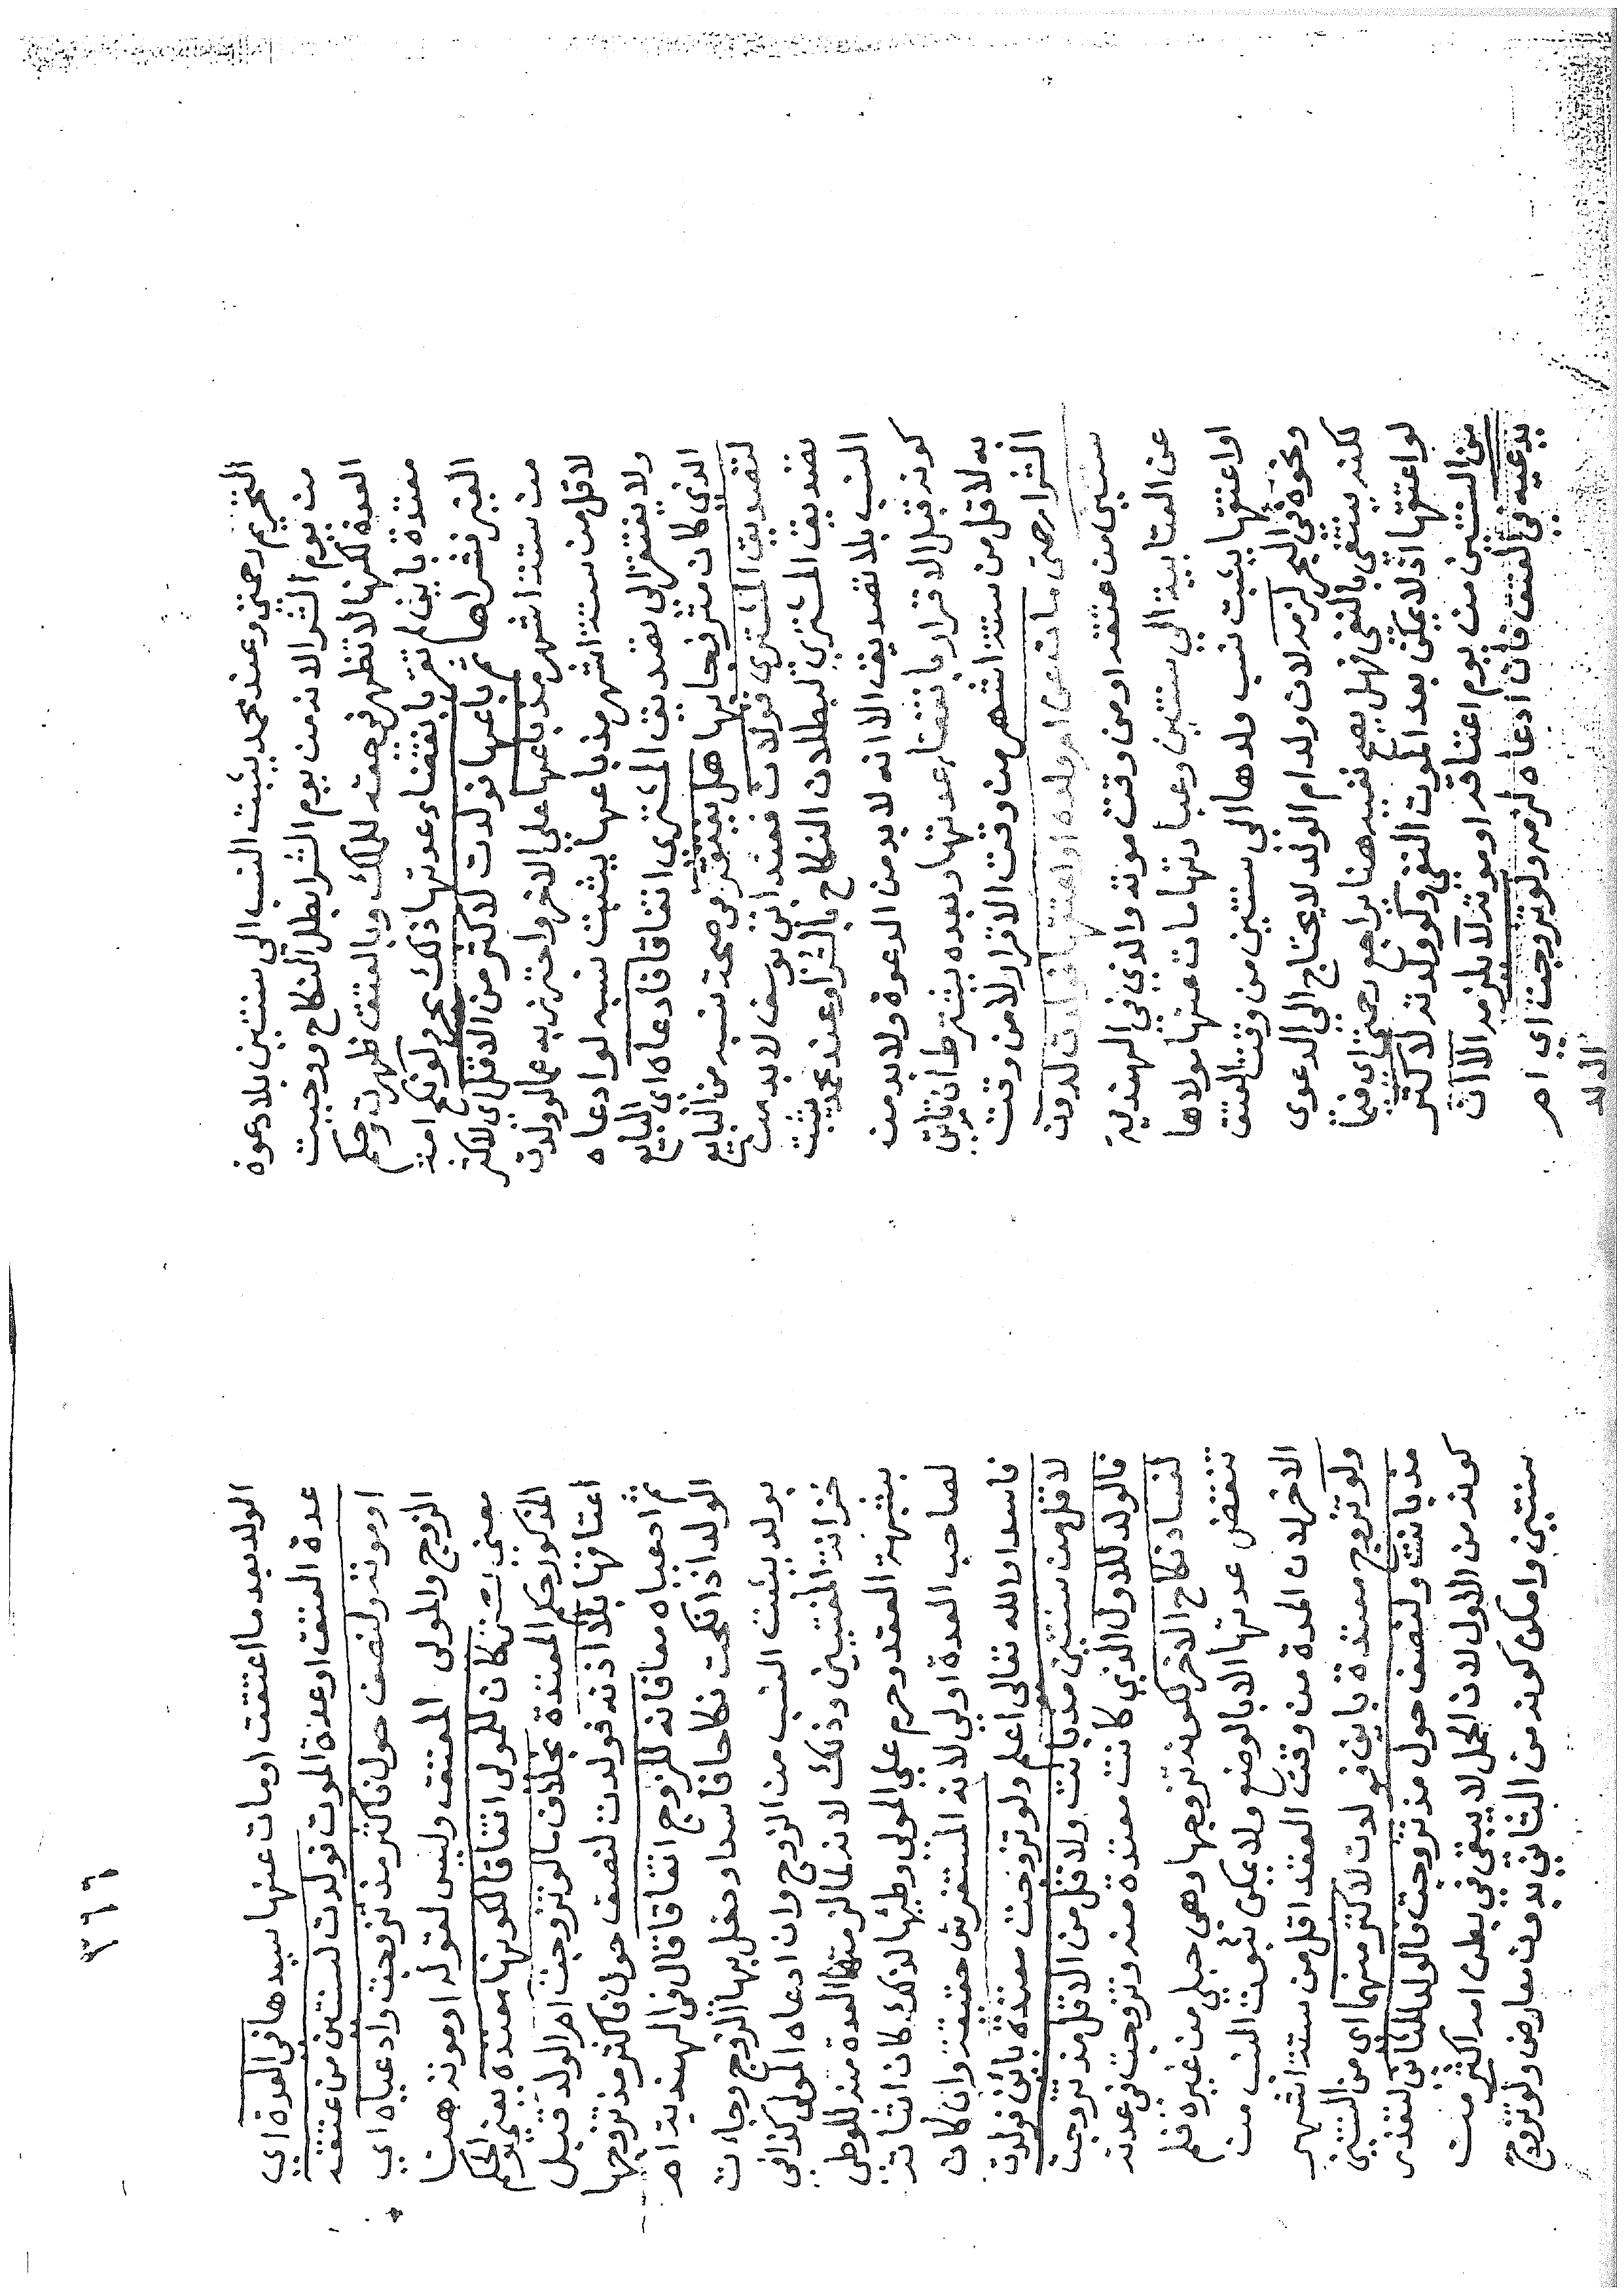 التحريم رحمتي وعند محمد يثبت النسب الى سنتين بلا دعوة
من يوم الشرا لانه من يوم الشرا بطل النكاح ووجبت
العدة لكنها لا تظهر في حقه للملك وبالعتق ظهرت وحكم
معتدة باين لم تقر بانقضاء عدتها ذلك بحر ولو نكح امة
الغير فشراها ثم باعها فولدت لاكثر من الاقل اي لاكثر
من ستة اشهر مذ باعها علي الاخر واحترز به عما لو ولدت
لاقل من ستة اشهر مذ باعها يثبت نسبه لو ادعاه
ولا يفتقر الى تصديق المشتري اتفاقا فادعاه اي البايع
الذي كان متزوجا بها هل يفتقر في صحة نسبه من البايع
لتصديق المشتري قولان فعند ابي يوسف لا بد من
تصديق المشتري لبطلان النكاح بالشرا وعند محمد يثبت
النسب بلا تصديق الا انه لا بد من الدعوة ولا بد من
كونه قبل الاقرار بانقضاء عدتها وبعده يشترط ان تاتي
به لاقل من ستة اشهر من وقت الاقرار لا من وقت
الشرا رحمتي مات عن ام ولده او اعتقها فولدت لدون
سنتين من عتقه او من وقت موته والذي في الهندية
عن العتابية الي سنتين وعبارتها مات عنها مولاها
او اعتقها يثبت نسب ولدها الى سنتين من وقت العتق
ونحوه في البحر لزمه لان ولد ام الولد لا يحتاج الي الدعوى
لكنه ينتفي بالنفي فهل يصح نفيه هنا يراجع رحمتي اي فيما
لو اعتقها اذ لا يمكن بعد الموت النفي وكو ولدته لاكثر
من السنتين من يوم اعتاقه او موته لا يلزمه الا ان
يدعيه في العتق فان ادعاه لزمه ولو تزوجت اي ام
الولد
٣٦٦
الولد بعد ما اعتقت او مات عنها سيدها في العدة اي
عدة العتق او عدة الموت فولدت لسنتين من عتقه
او موته ولنصف حول فاكثر مذ تزوجت وادعياه اي
الزوج والمولى المعتق وليس لقوله او موته هنا
معنى اشتركان للمولى اتفاقا لكونها معتدة يعني والحكم
المذكور حكم المعتدة بخلاف ما لو تزوجت ام الولد قبل
اعتاقها بلا اذنه فولدت لنصف حول فاكثر مذ تزوجها
ثم ادعياه معا فانه للزوج اتفاقا قال في الهندية ام
الولد اذا نكحت نكاحا فاسدا ودخل بها الزوج وجاءت
بولد يثبت النسب من الزوج وان ادعاه المولى كذا في
خزانة المفتيين وذلك لانه لما لزمتها العدة منه للوطي
بشبهة العقد وحرم علي المولى وطيها لذلك كان اثباته
لصاحب العدة اولي لانه المستفرش حقيقة وان كان
فاسدا والله تعالى اعلم ولو تزوجت معتدة باين فولدت
لاقل من سنتين مذ بانت ولاقل من الاقل مذ تزوجت
فالولد للاول الذي كانت معتدة منه وتزوجت في عدته
لفساد نكاح الاخر لكونه تزوجها وهي حبلي من غيره فلم
تنقض عدتها الا بالوضع ولا يمكن ثبوت النسب من
الاخر لان المدة من وقت العقد اقل من ستة اشهر
ولو تزوج معتدة باين فولدت لاكثر منهما اي من السنتين
مذ بانت ولنصف حول مذ تزوجت فالولد للثاني لتعذر
كونه من الاول لان الحمل لا يبقي في بطن امه اكثر من
سنتين وامكن كونه من الثاني بدون معارض ولو تزوج